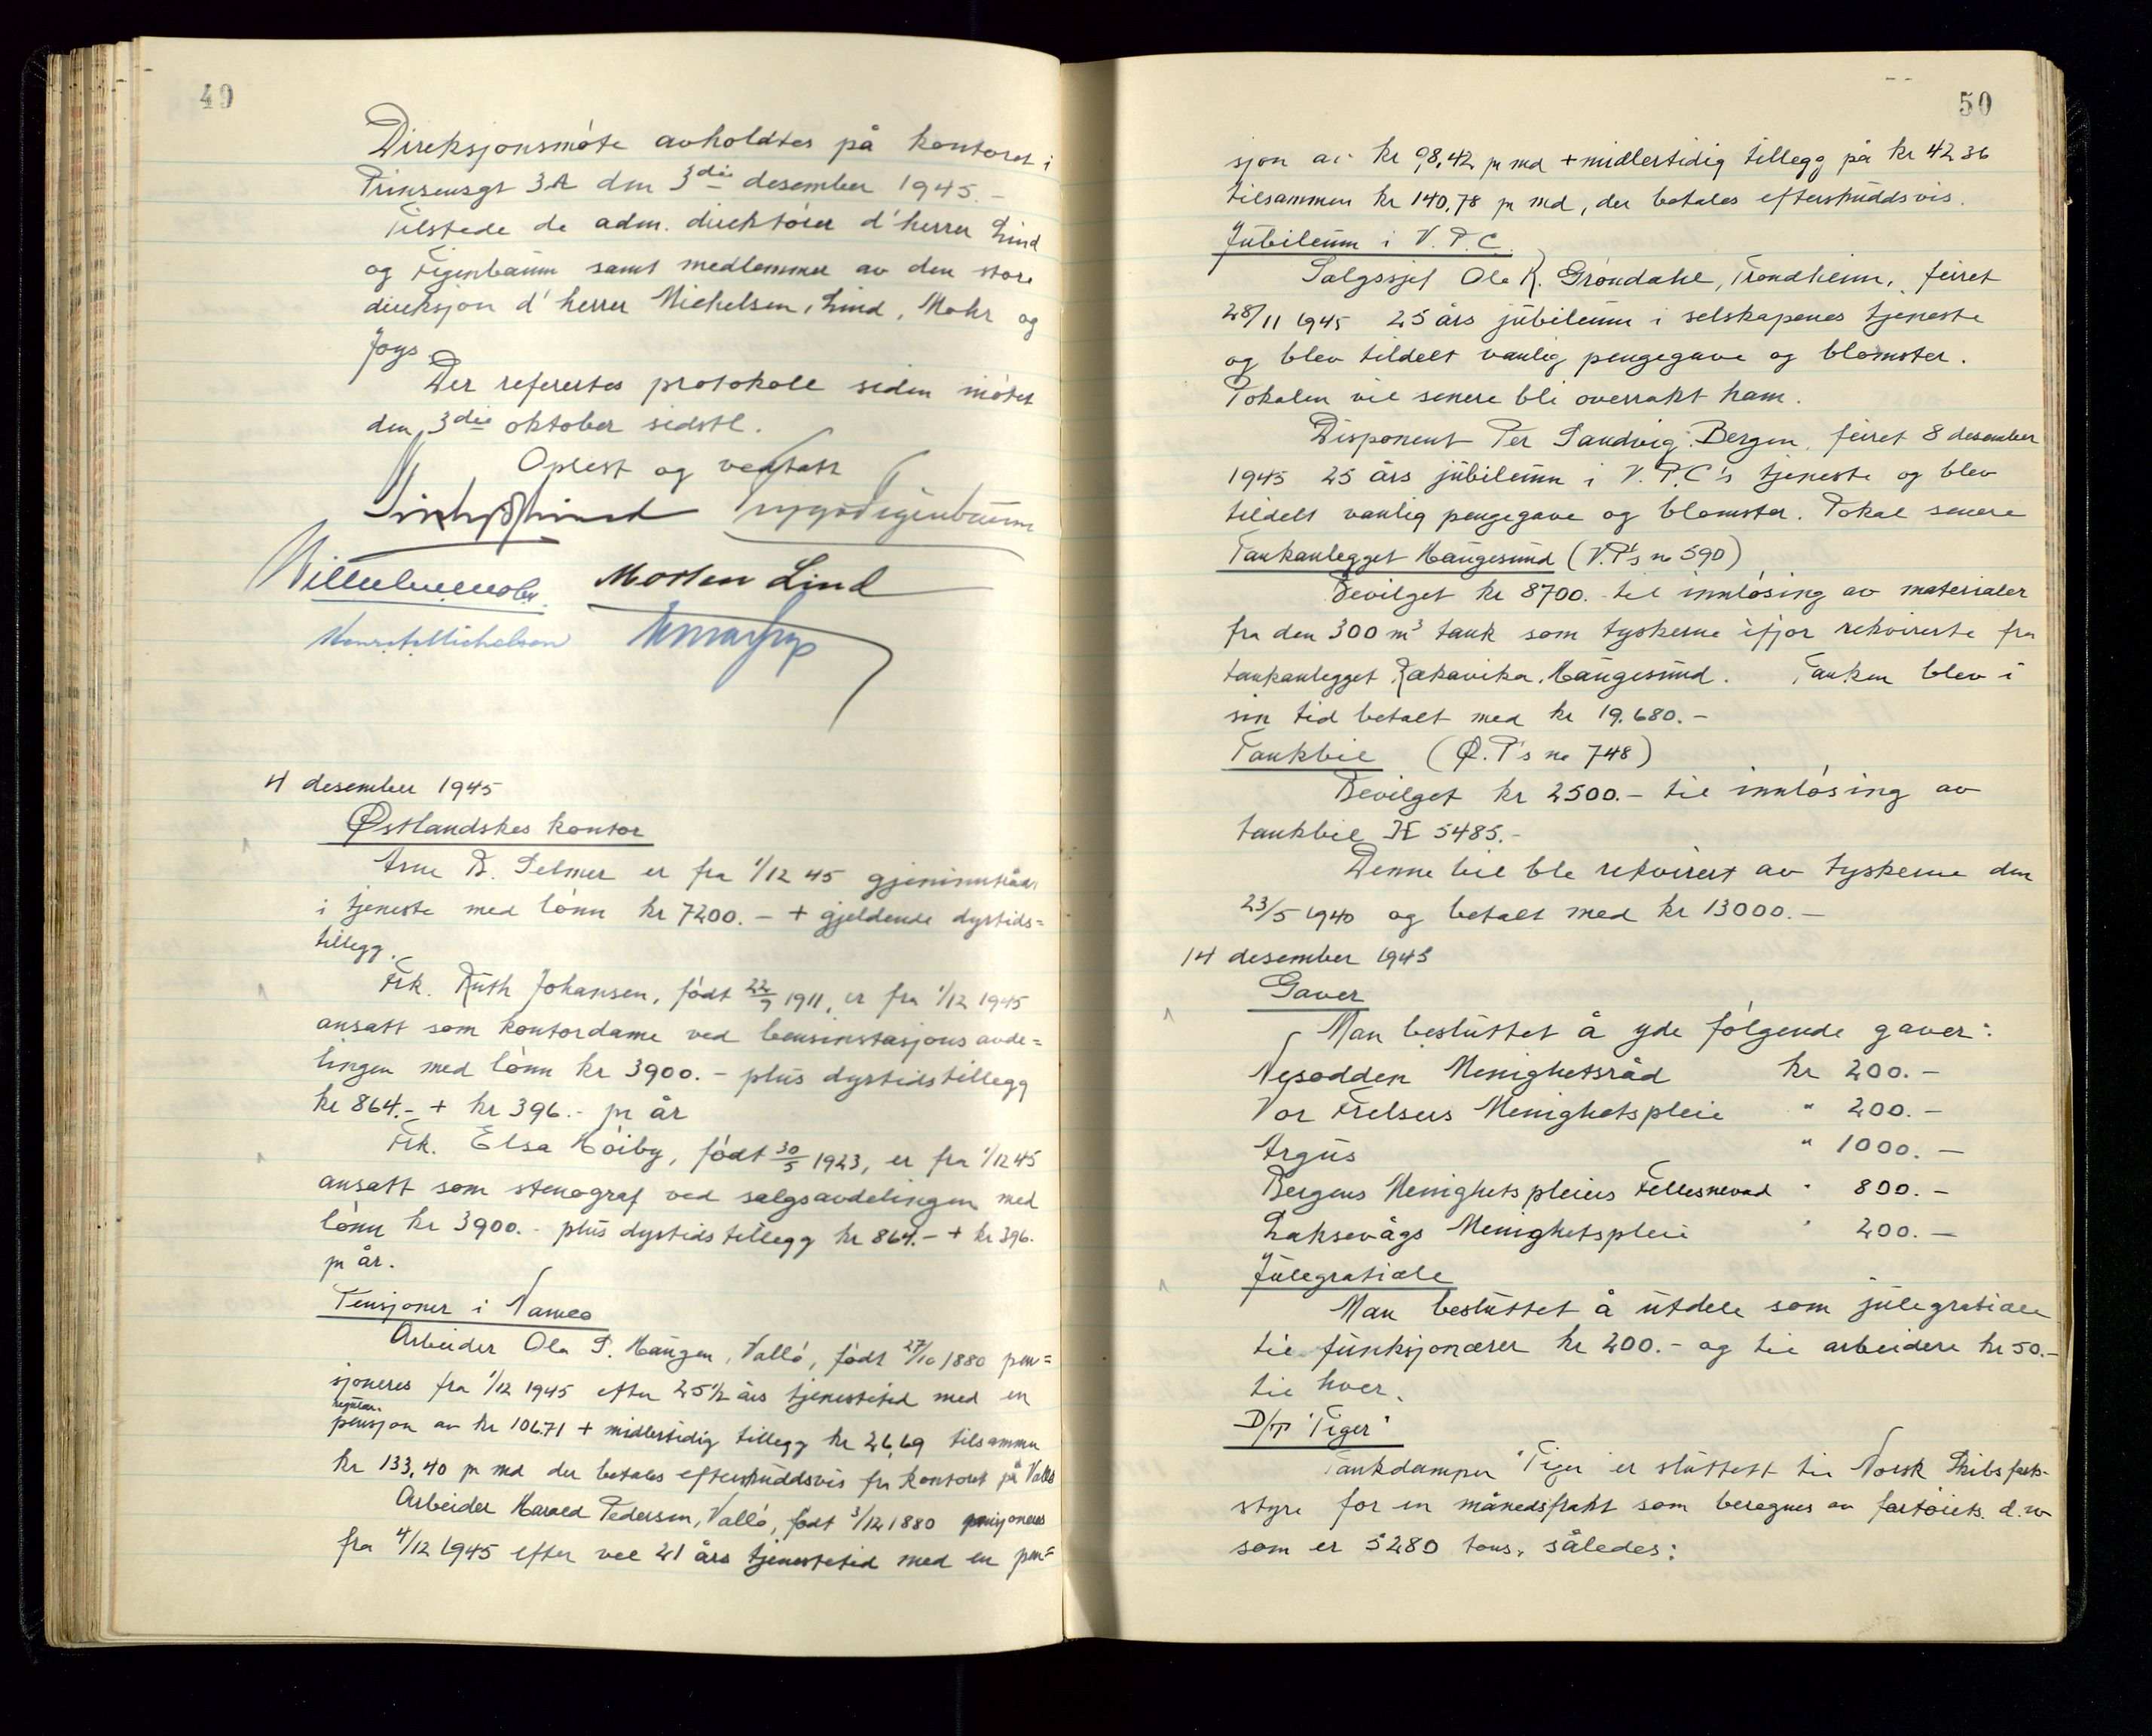 49
Direksjonsmøte avholdtes på kontoret i
Prinsensgt 3A den 3die desember 1945.-
Tilstede de adm. direktører d'herrer Lind
og Figenbaum samt medlemmer av den store
direksjon d'herrer Michelsen, Lind, Mohr og
Joys.
Der refertes protokoll siden møtet
den 3die oktober sidstl.
Oplest og vedtatt
Trygve Figenbaum
Wilhelm Mohr. Morten Lind
Michelsen
4 desember 1945
Østlandskes kontor
Arne B. Selmer er fra 1/12 45 gjeninntrådt
i tjeneste med lønn kr 7200.- + gjeldende dyrtids=
tillegg.
Frk. Ruth Johansen, født 22/9 1911, er fra 1/12 1945
ansatt som kontordame ved bensinstasjons avde=
lingen med lønn kr 3900.- plus dyrtidstillegg
kr 864.- + kr 396.- pr år
Frk. Elsa Høiby, født 30/5 1923, er fra 1/12 45
ansatt som stenograf ved salgsavdelingen med
lønn kr 3900.- plus dyrtidstillegg kr 864.- + kr 396.
pr år.
Pensjoner i Vameo
Arbeider Ola P. Haugen, Vallø, født 27/10 1880 pen=
sjoneres fra 1/12 1945 efter 25 1/2 års tjenestetid med en
regulær
pensjon av kr 106.71 + midlertidig tillegg kr 26,69 tilsammen
kr 133,40 pr md der betales efterskuddsvis fra kontoret på Vallø
Arbeider Harald Pedersen, Vallø, født 3/12 1880 pensjoneres
fra 4/12 1945 efter vel 21 års tjenestetid med en pen=
50
sjon av kr 98,42 pr md + midlertidig tillegg på kr 42 36
tilsammen kr 140,78 pr md, der betales efterskuddsvis.
Jubileum i V.P.C.
Salgssjef Ola R. Grøndahl, Trondheim, feiret
28/11 1945 25 års jubileum i selskapenes tjeneste
og blev tildelt vanlig pengegave og blomster.
Pokalen vil senere bli overrakt ham.
Disponent Per Sandvig, Bergen, feiret 8 desember
1945 25 års jubileum i V.P.C's tjeneste og blev
tildelt vanlig pengegave og blomster. Pokal senere
Tankanlegget Haugesund (V.P's no 590)
Bevilget kr 8700.- til innløsing av materialer
fra den 300 m³ tank som tyskerne ifjor rekvirerte fra
tankanlegget Rakavika, Haugesund. Tanken blev i
sin tid betalt med kr 19.680.-
Tankbil (Ø.P's no 748)
Bevilget kr 2500.- til innløsing av
tankbil H 5485.-
Denne bil ble rekvirert av tyskerne den
23/5 1940 og betalt med kr 13000.-
14 desember 1945
Gaver
Man besluttet å yde følgende gaver:
Nesodden Menighetsråd kr 200.-
Vor Frelsers Menighetspleie " 200.-
Argus " 1000.-
Bergens Menighetspleiers Fellesnevnd " 800.-
Laksevågs Menighetspleie " 200.-
Julegratiale
Man besluttet å utdele som julegratiale
til funksjonærer kr 200.- og til arbeidere kr 50.-
til hver.
D/T "Tiger"
Tankdamper "Tiger" er sluttet til Norsk Skibsfarts-
styre for en månedsfrakt som beregnes av fartøiets d.w
som er 5280 tons, således: